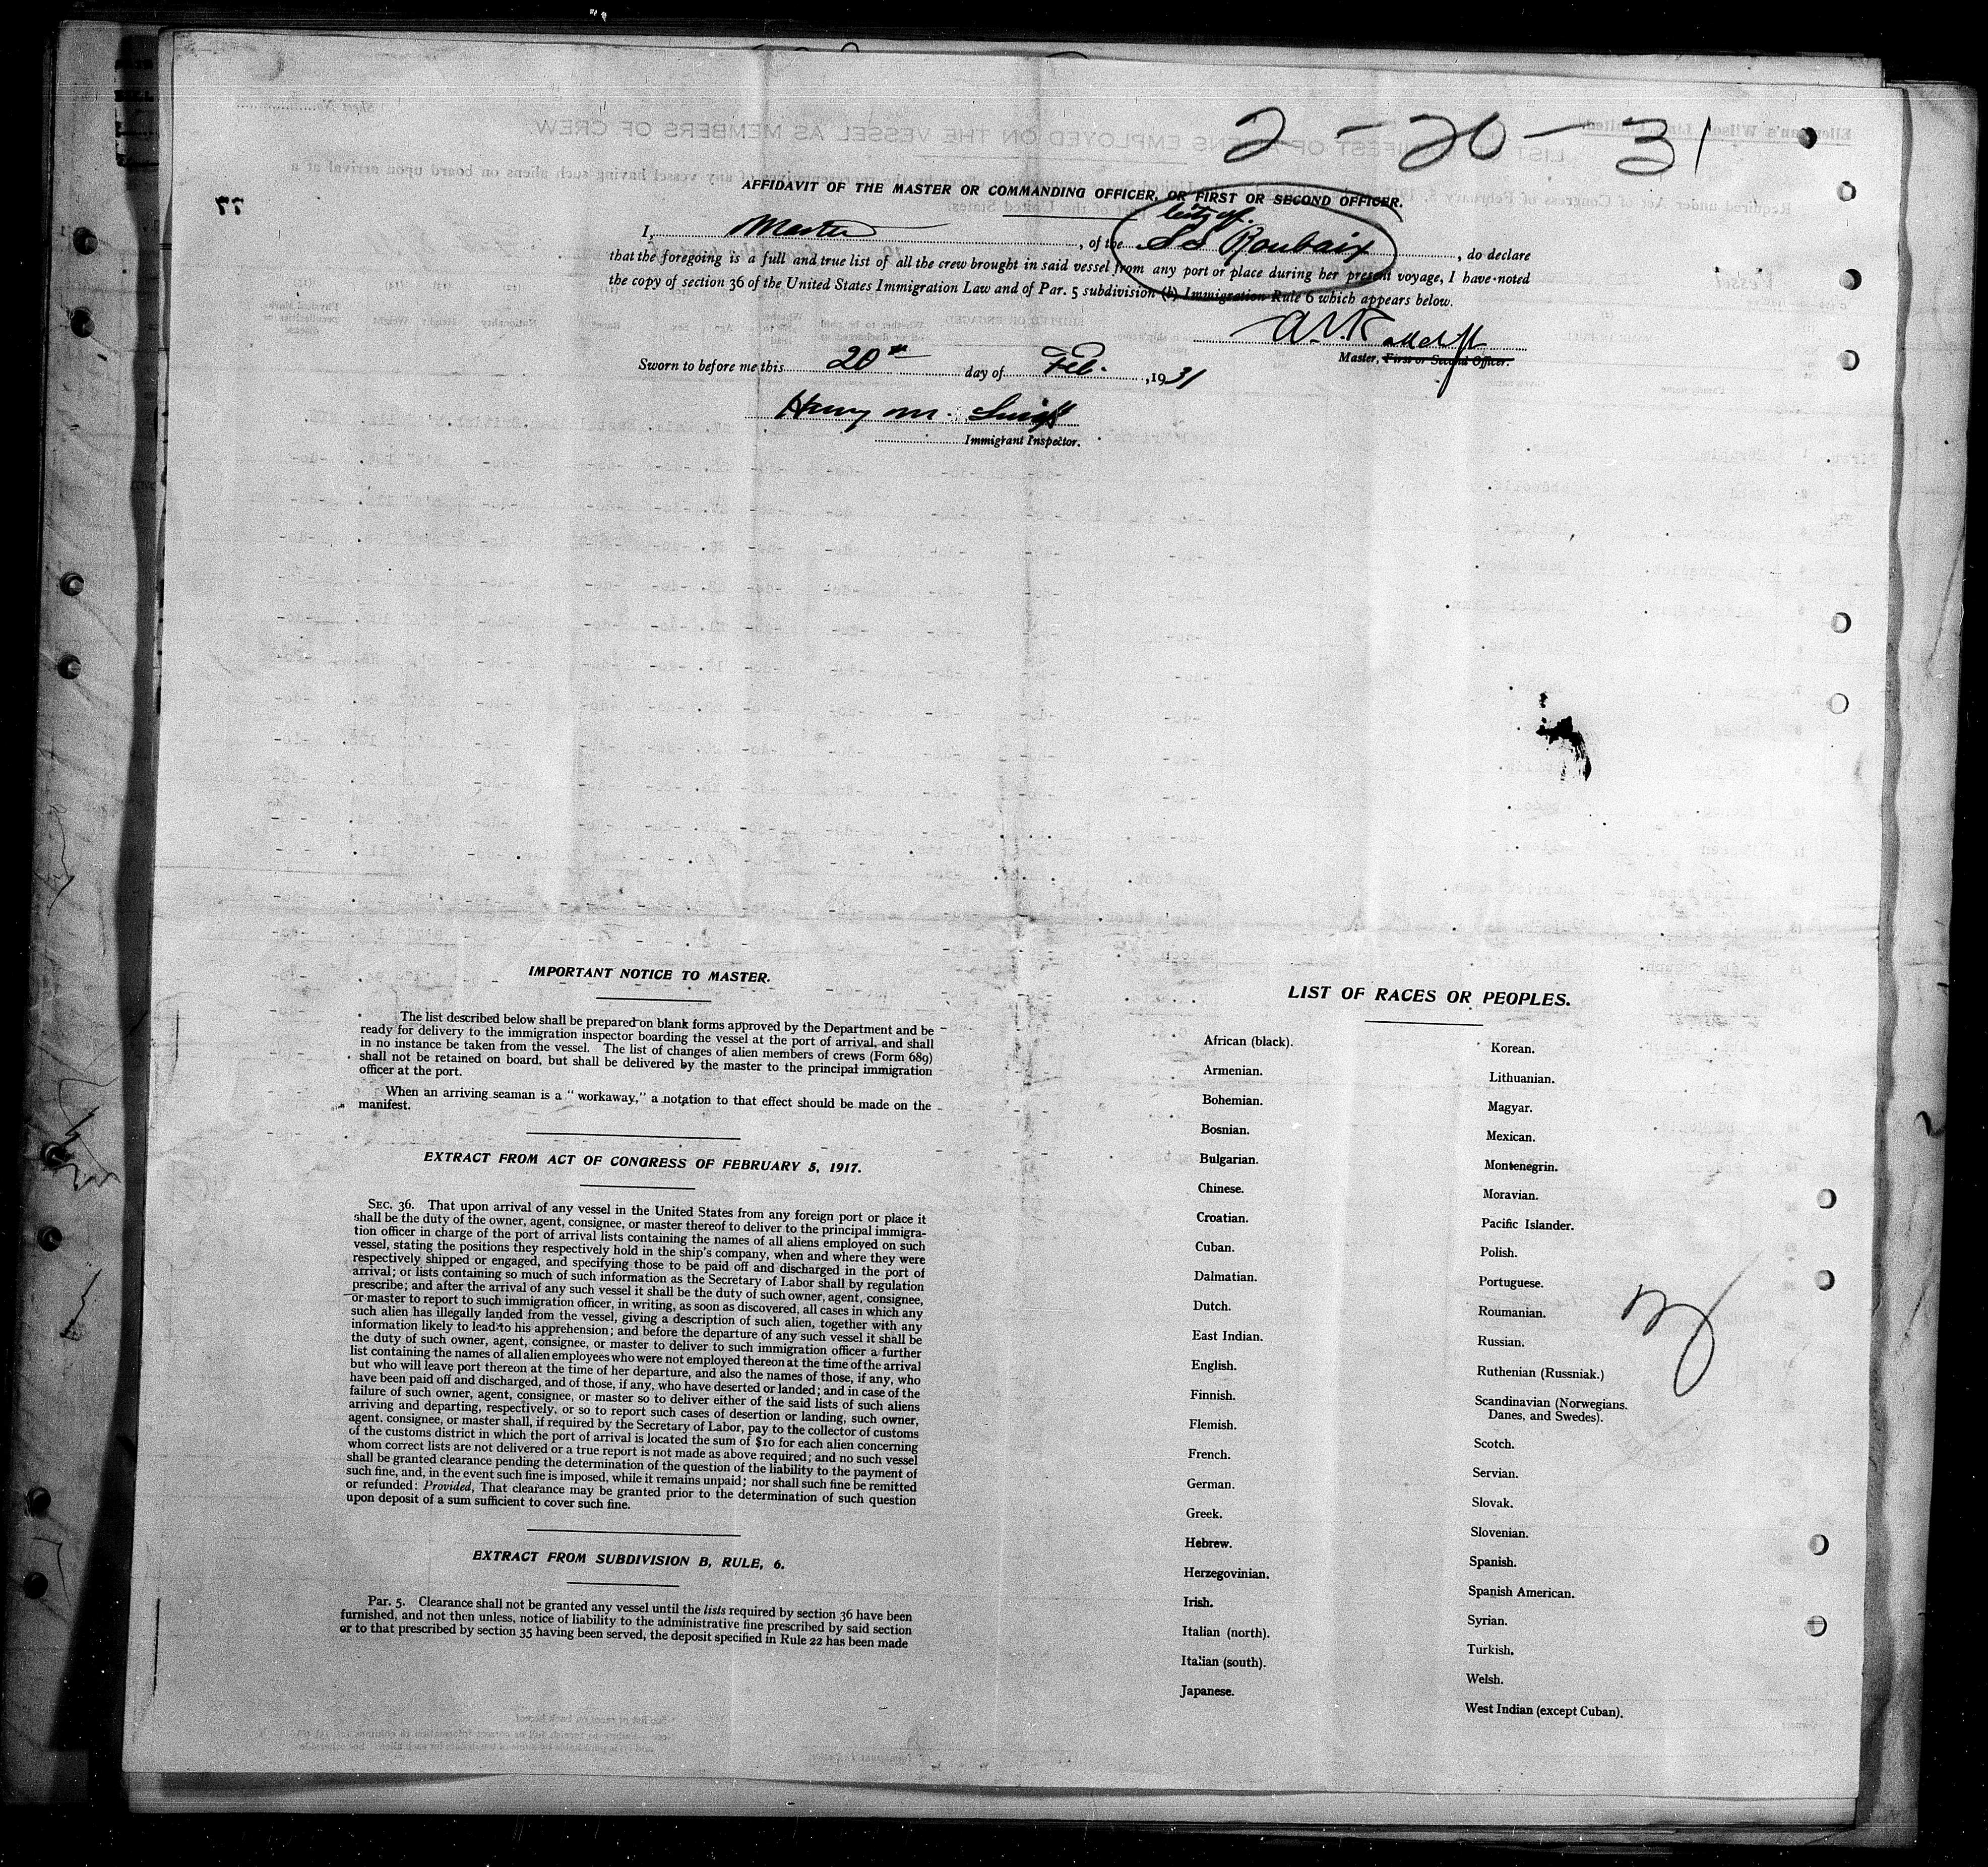 2-20-31
AFFIDAVIT OF THE MASTER OR COMMANDING OFFICER, OR FIRST OR SECOND OFFICER.
77
City of
I, Master, of the SS Roubaix, do declare
that the foregoing is a full and true list of all the crew brought in said vessel from any port or place during her present voyage, I have noted
the copy of section 36 of the United States Immigration Law and of Par. 5 subdivision (b) Immigration Rule 6 which appears below.
Master, First or Second Officer.
Sworn to before me this 20th day of Feb. , 1931
Harry M.
Immigrant Inspector.
IMPORTANT NOTICE TO MASTER.
The list described below shall be prepared on blank forms approved by the Department and be
ready for delivery to the immigration inspector boarding the vessel at the port of arrival, and shall
in no instance be taken from the vessel. The list of changes of alien members of crews (Form 689)
shall not be retained on board, but shall be delivered by the master to the principal immigration
officer at the port.
When an arriving seaman is a "workaway," a notation to that effect should be made on the
manifest.
EXTRACT FROM ACT OF CONGRESS OF FEBRUARY 5, 1917.
SEC. 36. That upon arrival of any vessel in the United States from any foreign port or place it
shall be the duty of the owner, agent, consignee, or master thereof to deliver to the principal immigra-
tion officer in charge of the port of arrival lists containing the names of all aliens employed on such
vessel, stating the positions they respectively hold in the ship's company, when and where they were
respectively shipped or engaged, and specifying those to be paid off and discharged in the port of
arrival; or lists containing so much of such information as the Secretary of Labor shall by regulation
prescribe; and after the arrival of any such vessel it shall be the duty of such owner, agent, consignee,
or master to report to such immigration officer, in writing, as soon as discovered, all cases in which any
such alien has illegally landed from the vessel, giving a description of such alien, together with any
information likely to lead to his apprehension; and before the departure of any such vessel it shall be
the duty of such owner, agent, consignee, or master to deliver to such immigration officer a further
list containing the names of all alien employees who were not employed thereon at the time of the arrival
but who will leave port thereon at the time of her departure, and also the names of those, if any, who
have been paid off and discharged, and of those, if any, who have deserted or landed; and in case of the
failure of such owner, agent, consignee, or master so to deliver either of the said lists of such aliens
arriving and departing, respectively, or so to report such cases of desertion or landing, such owner,
agent. consignee, or master shall, if required by the Secretary of Labor, pay to the collector of customs
of the customs district in which the port of arrival is located the sum of $10 for each alien concerning
whom correct lists are not delivered or a true report is not made as above required; and no such vessel
shall be granted clearance pending the determination of the question of the liability to the payment of
such fine, and, in the event such fine is imposed, while it remains unpaid; nor shall such fine be remitted
or refunded: Provided, That clearance may be granted prior to the determination of such question
upon deposit of a sum sufficient to cover such fine.
EXTRACT FROM SUBDIVISION B, RULE, 6.
Par. 5. Clearance shall not be granted any vessel until the lists required by section 36 have been
furnished, and not then unless, notice of liability to the administrative fine prescribed by said section
or to that prescribed by section 35 having been served, the deposit specified in Rule 22 has been made
LIST OF RACES OR PEOPLES.
African (black).
Armenian.
Bohemian.
Bosnian.
Bulgarian.
Chinese.
Croatian.
Cuban.
Dalmatian.
Dutch.
East Indian.
English.
Finnish.
Flemish.
French.
German.
Greek.
Hebrew.
Herzegovinian.
Irish.
Italian (north).
Italian (south).
Japanese.
Korean.
Lithuanian.
Magyar.
Mexican.
Montenegrin.
Moravian.
Pacific Islander.
Polish.
Portuguese.
Roumanian.
Russian.
Ruthenian (Russniak.)
Scandinavian (Norwegians.
Danes, and Swedes).
Scotch.
Servian.
Slovak.
Slovenian.
Spanish.
Spanish American.
Syrian.
Turkish.
Welsh.
West Indian (except Cuban).